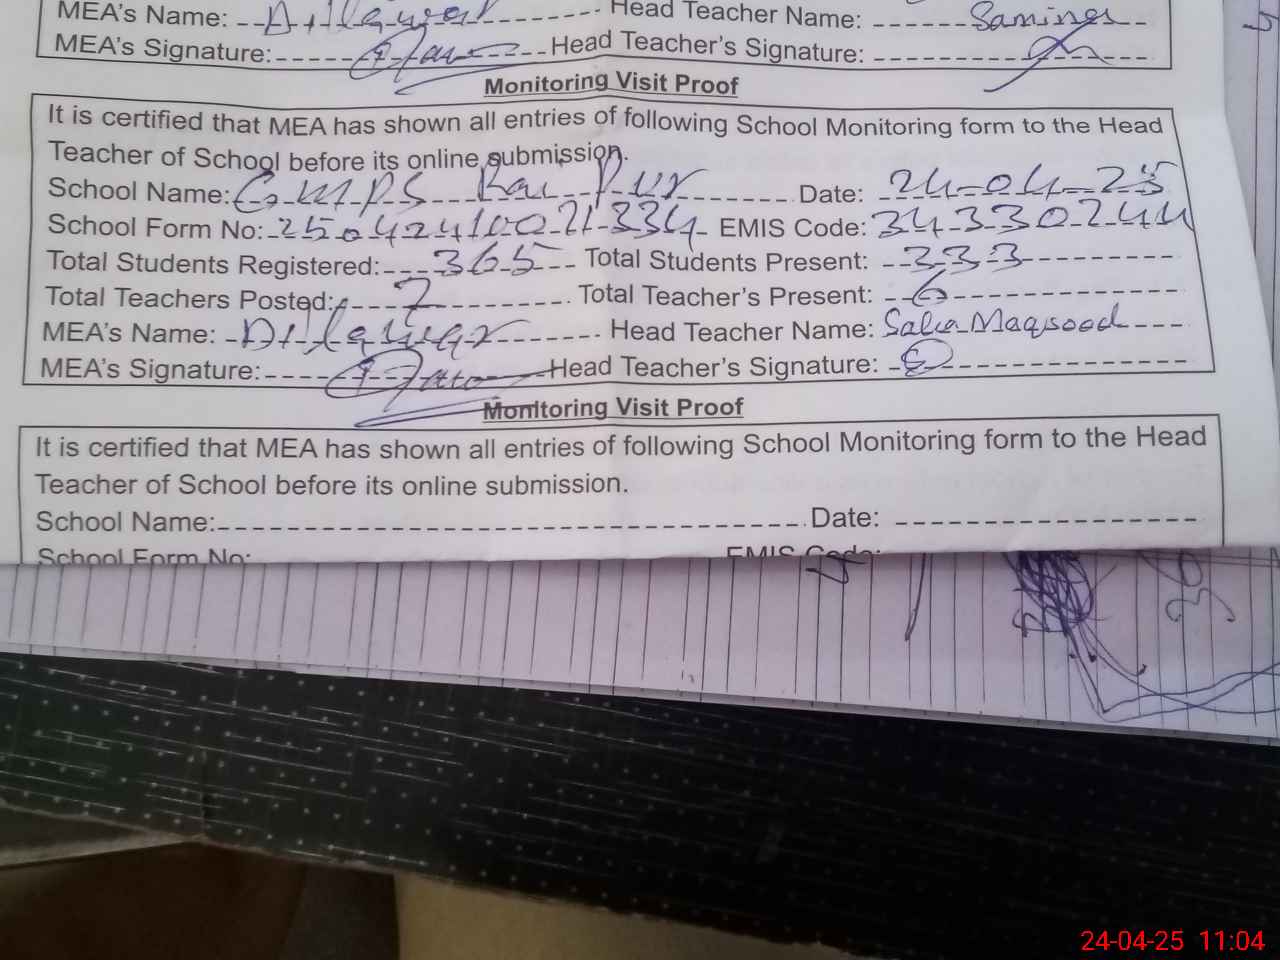 MEA's Name: Dilawar Head Teacher Name: Samina
MEA's Signature: Head Teacher's Signature:
Monitoring Visit Proof
It is certified that MEA has shown all entries of following School Monitoring form to the Head
Teacher of School before its online submission.
School Name: GMPS Rai Pur Date: 24-04-25
School Form No: EMIS Code: 34330244
Total Students Registered: 365 Total Students Present: 333
Total Teachers Posted: 7 Total Teacher's Present: 6
MEA's Name: Dilawar Head Teacher Name: Maqsood
MEA's Signature: Head Teacher's Signature:
Monitoring Visit Proof
It is certified that MEA has shown all entries of following School Monitoring form to the Head
Teacher of School before its online submission.
School Name: Date:
School Form No: EMIS Code:
24-04-25 11:04